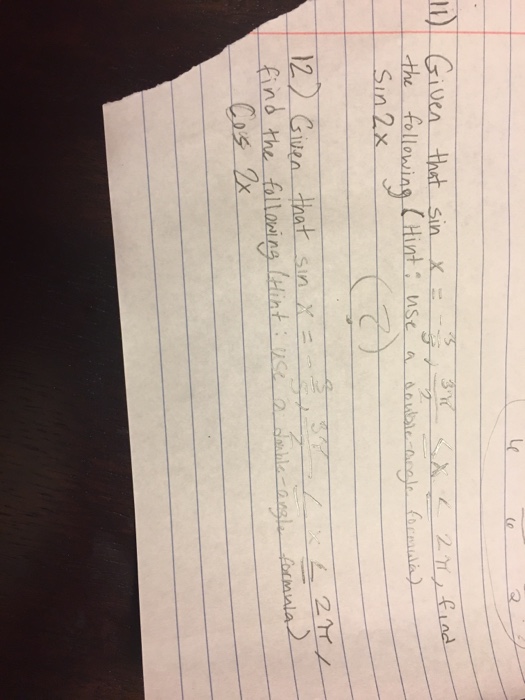 11) Given that sin x = -3/5, 3π/2 ≤ x ≤ 2π, find
the following (Hint: use a double-angle formula)
Sin 2x
(2)
12) Given that sin x = -3/5, 3π/2 ≤ x ≤ 2π,
find the following (Hint: use a double-angle formula)
Cos 2x